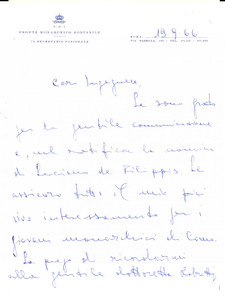 F.M.G.
FRONTE MONARCHICO GIOVANILE
IL SEGRETARIO NAZIONALE
ROMA, 19.9.66
Caro Ingegnere,
Le sono grato
per la gentile comunicazione
e, nel ratificare la nomina
di Luciano de Filippis, Le
assicuro tutto il mio più
vivo interessamento per i
giovani monarchici di
La prego di ricordarmi
alla gentile dottoretta